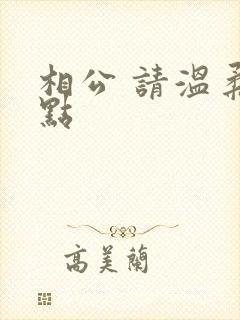 相公 請溫柔
點
高美蘭